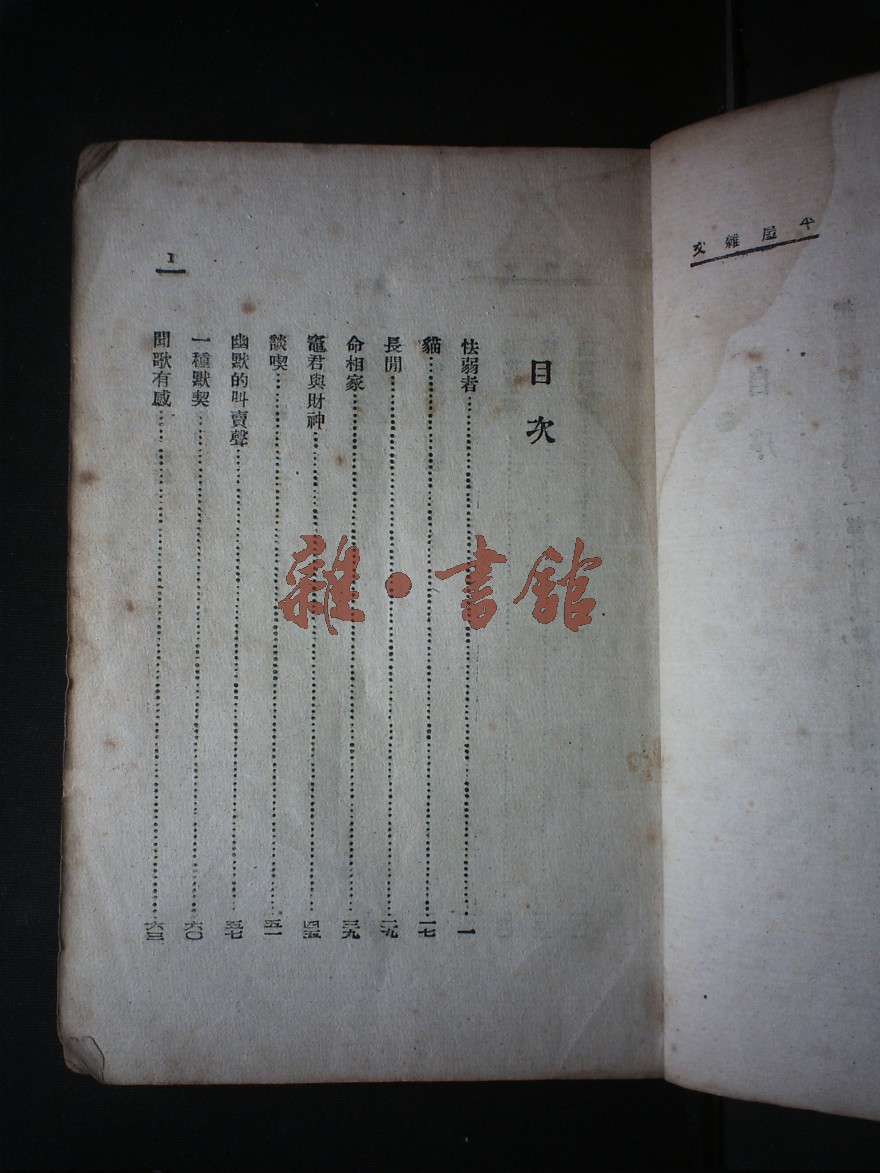 平屋雜文
目次
怯弱者……一
貓……一七
長閒……二九
命相家……三九
竈君與財神……四五
談喫……五一
幽默的叫賣聲……五七
一種默契……六〇
聞歌有感……六三
1
雜·書館